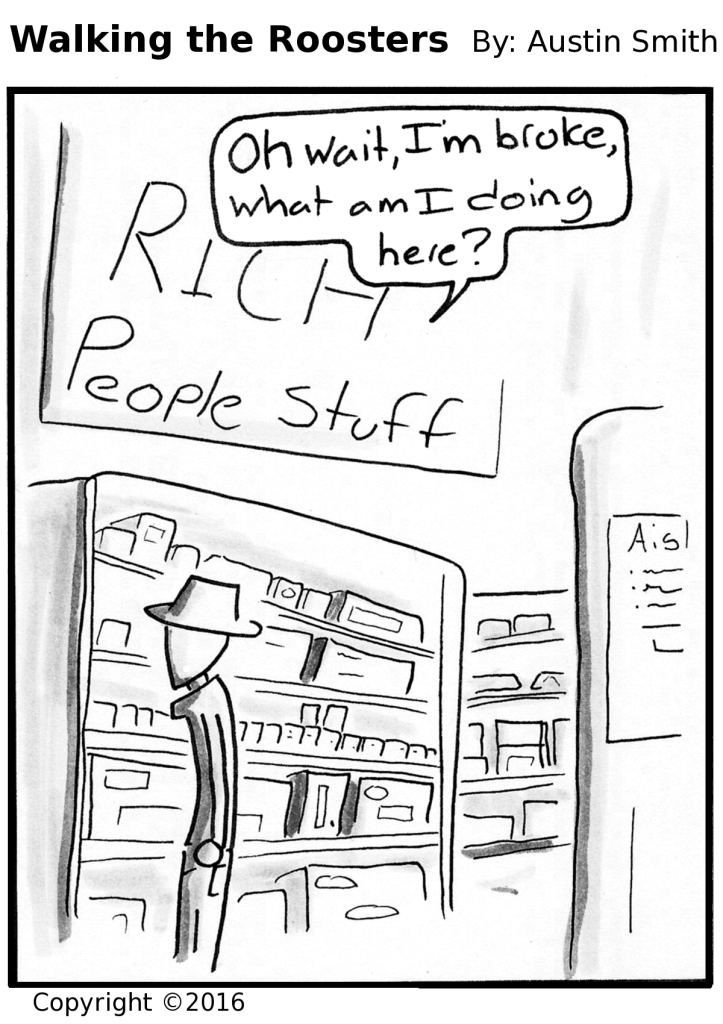 Walking the Roosters By: Austin Smith
Oh wait, I'm broke,
what am I doing
here?
RICH
People Stuff
Aisl
Copyright ©2016